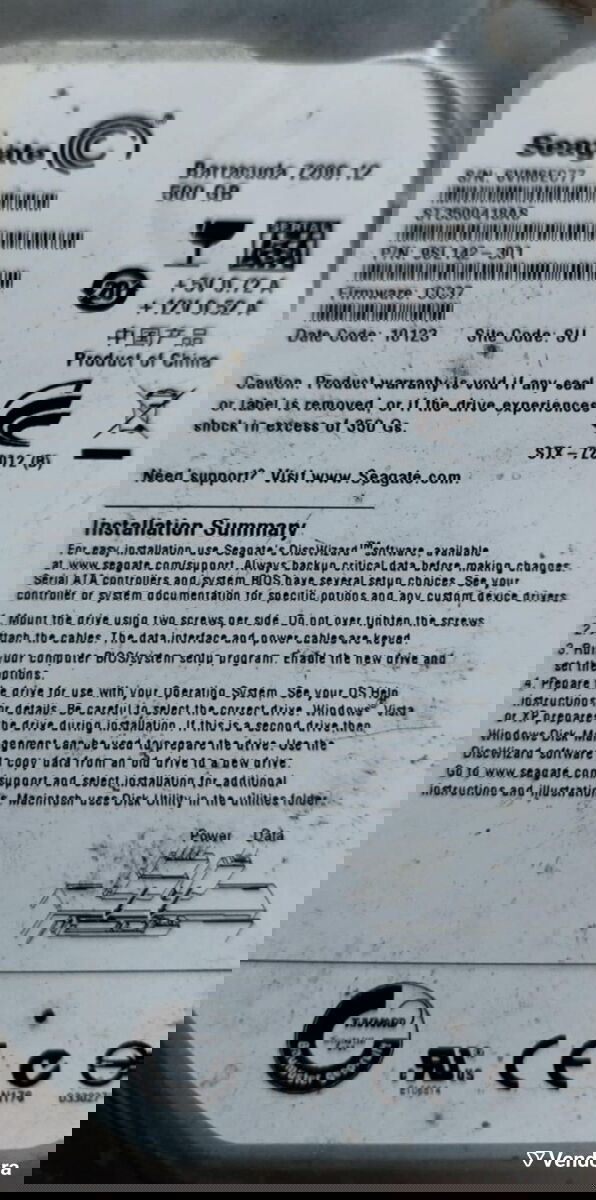 Seagate
Barracuda 7200.12
500 GB
ST3500418AS
P/N: 9SL142-301
SERIAL
ATA
+5V 0.72 A
+12V 0.52 A
Firmware: CC37
Date Code: 10123 Site Code: SU
中国产品
Product of China
Caution: Product warranty is void if any seal
or label is removed, or if the drive experiences
shock in excess of 300 Gs.
Need support? Visit www.Seagate.com
Installation Summary
For easy installation use Seagate's DiscWizard™ software, available
at www.seagate.com/support. Always backup critical data before making changes.
Serial ATA controllers and system BIOS have several setup choices. See your
controller or system documentation for specific options and any custom device drivers.
Mount the drive using two screws per side. Do not over tighten the screws.
2. Attach the cables. The data interface and power cables are keyed.
3. Run your computer BIOS/system setup program. Enable the new drive and
set the options.
4. Prepare the drive for use with your Operating System. See your OS Help
instructions for details. Be careful to select the correct drive. Windows® Vista
or XP prepares the drive during installation. If this is a second drive then
Windows Disk Management can be used to prepare the drive. Use the
DiscWizard software to copy data from an old drive to a new drive.
Go to www.seagate.com/support and select installation for additional
instructions and illustrations. Macintosh uses Disk Utility in the utilities folder.
Power Data
CE
Vendora